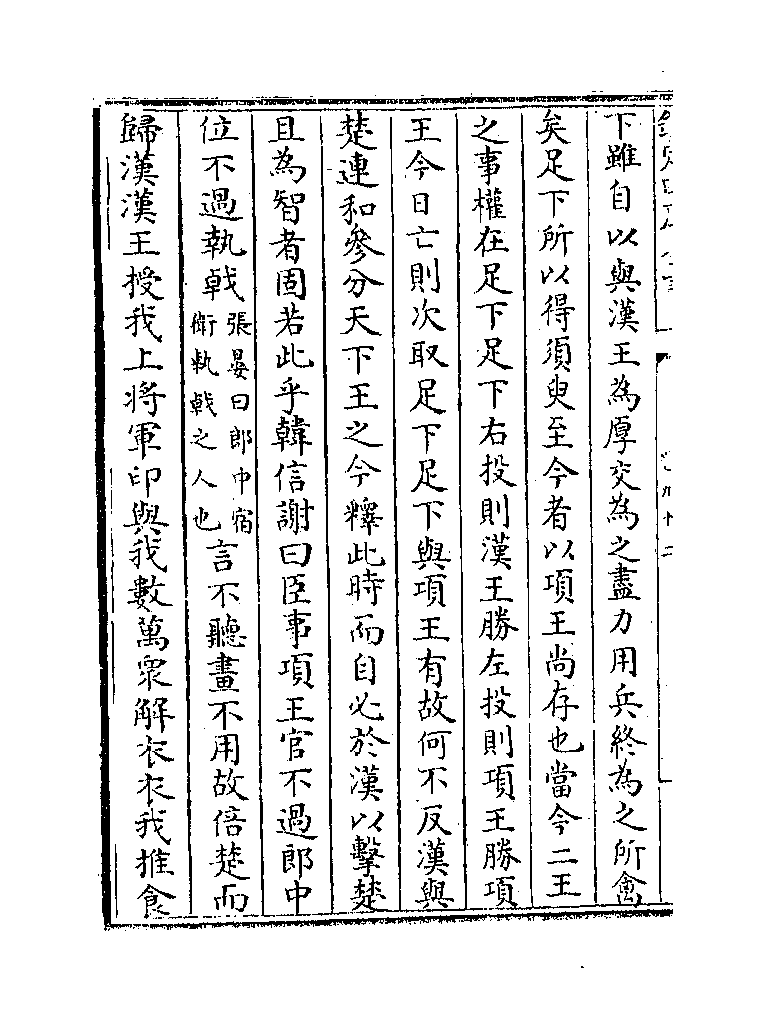 下雖自以與漢王為厚交為之盡力用兵終為之所禽
矣足下所以得須臾至今者以項王尚存也當今二王
之事權在足下足下右投則漢王勝左投則項王勝項
王今日亡則次取足下足下與項王有故何不反漢與
楚連和參分天下王之今釋此時而自必於漢以擊楚
且為智者固若此乎韓信謝曰臣事項王官不過郎中
位不過執戟張晏曰郎中宿衛執戟之人也言不聽畫不用故倍楚而
歸漢漢王授我上將軍印與我數萬衆解衣衣我推食